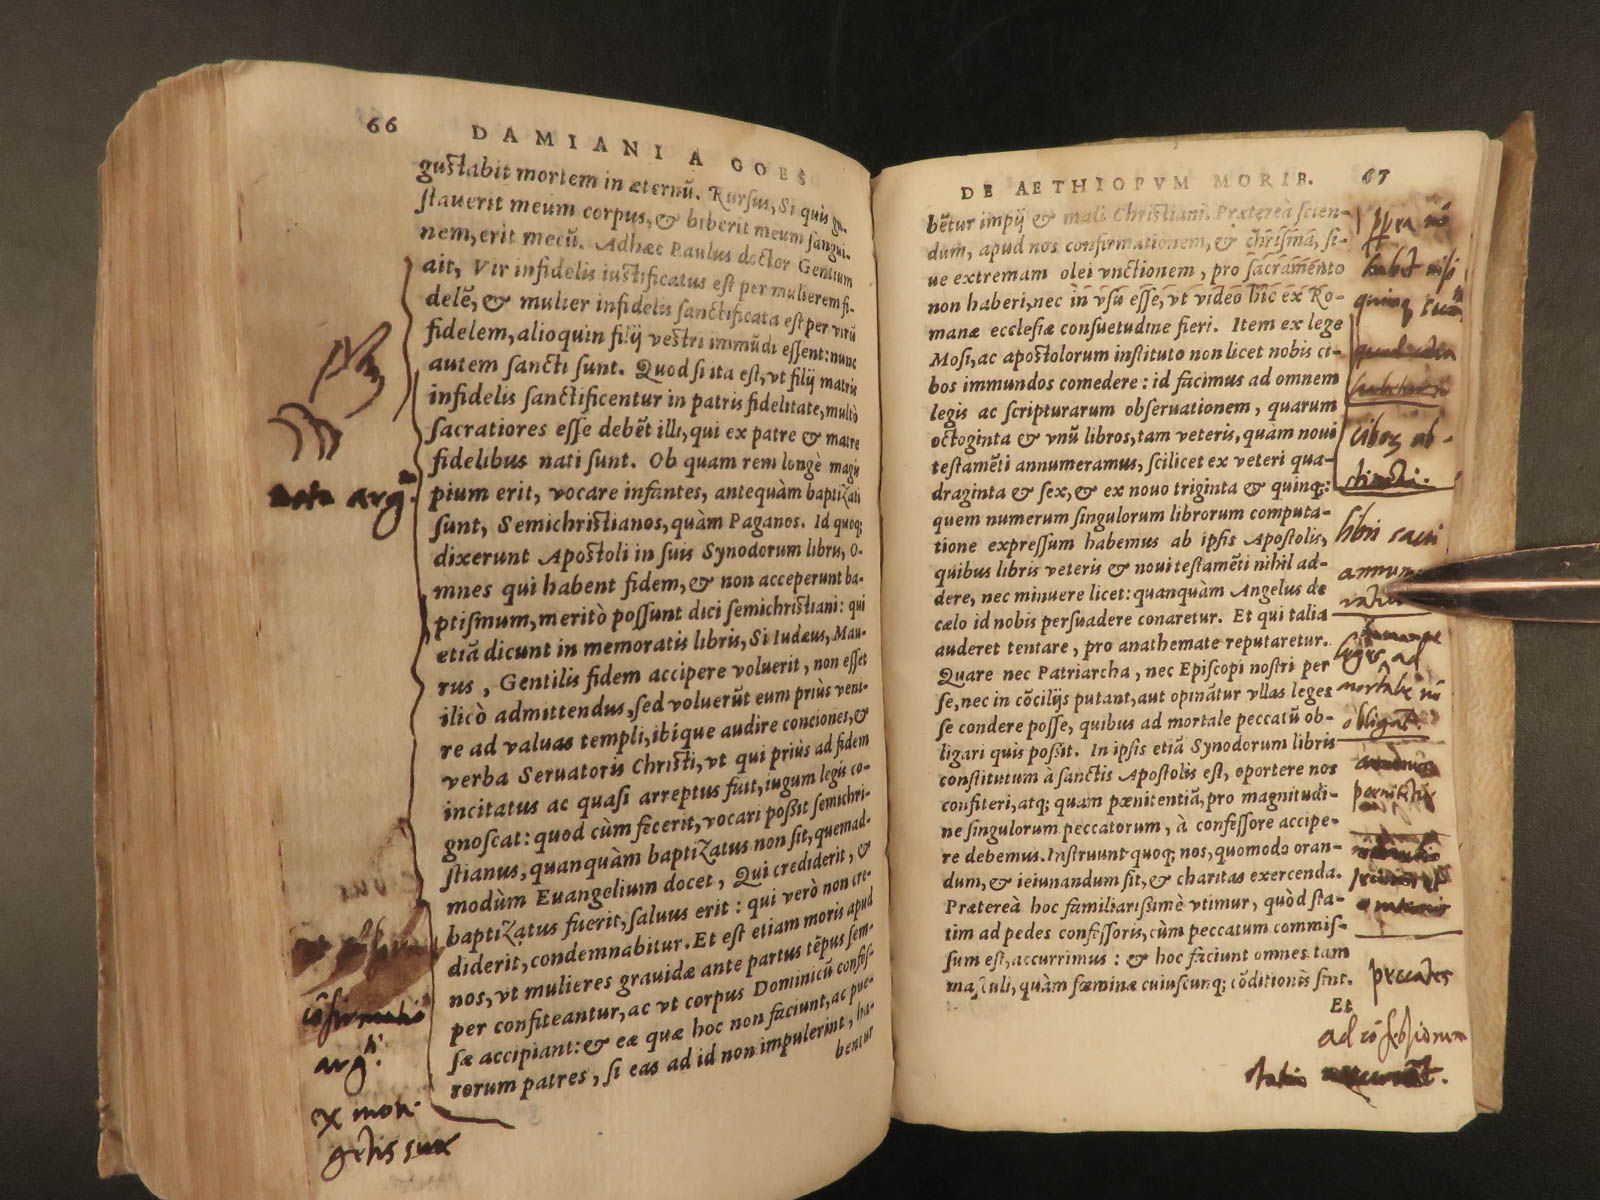 66 DAMIANI A GOES
gustabit mortem in æternũ. Rursus, Si quis gu-
stauerit meum corpus, & biberit meum sangui-
nem, erit mecũ. Adhæc Paulus doctor Gentium
ait, Vir infidelis iustificatus est per mulierem fi-
delẽ, & mulier infidelis sanctificata est per virũ
fidelem, alioquin filij vestri immũdi essent: nunc
autem sancti sunt. Quod si ita est, vt filij matris
infidelis sanctificentur in patris fidelitate, multò
sacratiores esse debẽt illi, qui ex patre & matre
fidelibus nati sunt. Ob quam rem longè magis
pium erit, vocare infantes, antequàm baptizati
sunt, Semichristianos, quàm Paganos. Id quoq;
dixerunt Apostoli in suis Synodorum libris, O-
mnes qui habent fidem, & non acceperunt ba-
ptismum, meritò possunt dici semichristiani: qui
etiã dicunt in memoratis libris, Si Iudæus, Mau-
rus, Gentilis fidem accipere voluerit, non esset
ilicò admittendus, sed voluerũt eum priùs veni-
re ad valuas templi, ibíque audire conciones, &
verba Seruatoris Christi, vt qui priùs ad fidem
incitatus ac quasi arreptus fuit, iugum legis co-
gnoscat: quod cùm fecerit, vocari possit semichri-
stianus, quanquàm baptizatus non sit, quemad-
modùm Euangelium docet, Qui crediderit, &
baptizatus fuerit, saluus erit: qui verò non cre-
diderit, condemnabitur. Et est etiam moris apud
nos, vt mulieres grauidæ ante partus tẽpus sem-
per confiteantur, ac vt corpus Dominicũ confes-
sæ accipiant: & eæ quæ hoc non faciunt, ac pue-
rorum patres, si eas ad id non impulerint, ha-
bentur
nota argᵐ.
cõfirmatio
argᵗ.
ex mori
gẽtis suæ
DE AETHIOPVM MORIB. 67
bẽtur impij & mali Christiani. Prætereà scien-
dum, apud nos confirmationem, & chrisma, si-
ue extremam olei vnctionem, pro sacramento
non haberi, nec in vsu esse, vt video hîc ex Ro-
manæ ecclesiæ consuetudine fieri. Item ex lege
Mosi, ac apostolorum instituto non licet nobis ci-
bos immundos comedere: id facimus ad omnem
legis ac scripturarum obseruationem, quarum
octoginta & vnũ libros, tam veteris, quàm noui
testamẽti annumeramus, scilicet ex veteri qua-
draginta & sex, & ex nouo triginta & quinq;:
quem numerum singulorum librorum computa-
tione expressum habemus ab ipsis Apostolis,
quibus libris veteris & noui testamẽti nihil ad-
dere, nec minuere licet: quanquàm Angelus de
cælo id nobis persuadere conaretur. Et qui talia
auderet tentare, pro anathemate reputaretur.
Quare nec Patriarcha, nec Episcopi nostri per
se, nec in cõcilijs putant, aut opinãtur vllas leges
se condere posse, quibus ad mortale peccatũ ob-
ligari quis possit. In ipsis etiã Synodorum libris
constitutum à sanctis Apostolis est, oportere nos
confiteri, atq; quam pœnitentiã, pro magnitudi-
ne singulorum peccatorum, à confessore accipe-
re debemus. Instruunt quoq; nos, quomodo oran-
dum, & ieiunandum sit, & charitas exercenda.
Prætereà hoc familiarissimè vtimur, quòd sta-
tim ad pedes confessoris, cùm peccatum commis-
sum est, accurrimus: & hoc faciunt omnes tam
masculi, quàm fœminæ cuiuscunq; cõditionis sint.
Et
habet nisi
cibos ab-
stineti.
libri sacri
leges ad
mortale nõ
obligãt.
peccãtes
ad cõfessorem
statim